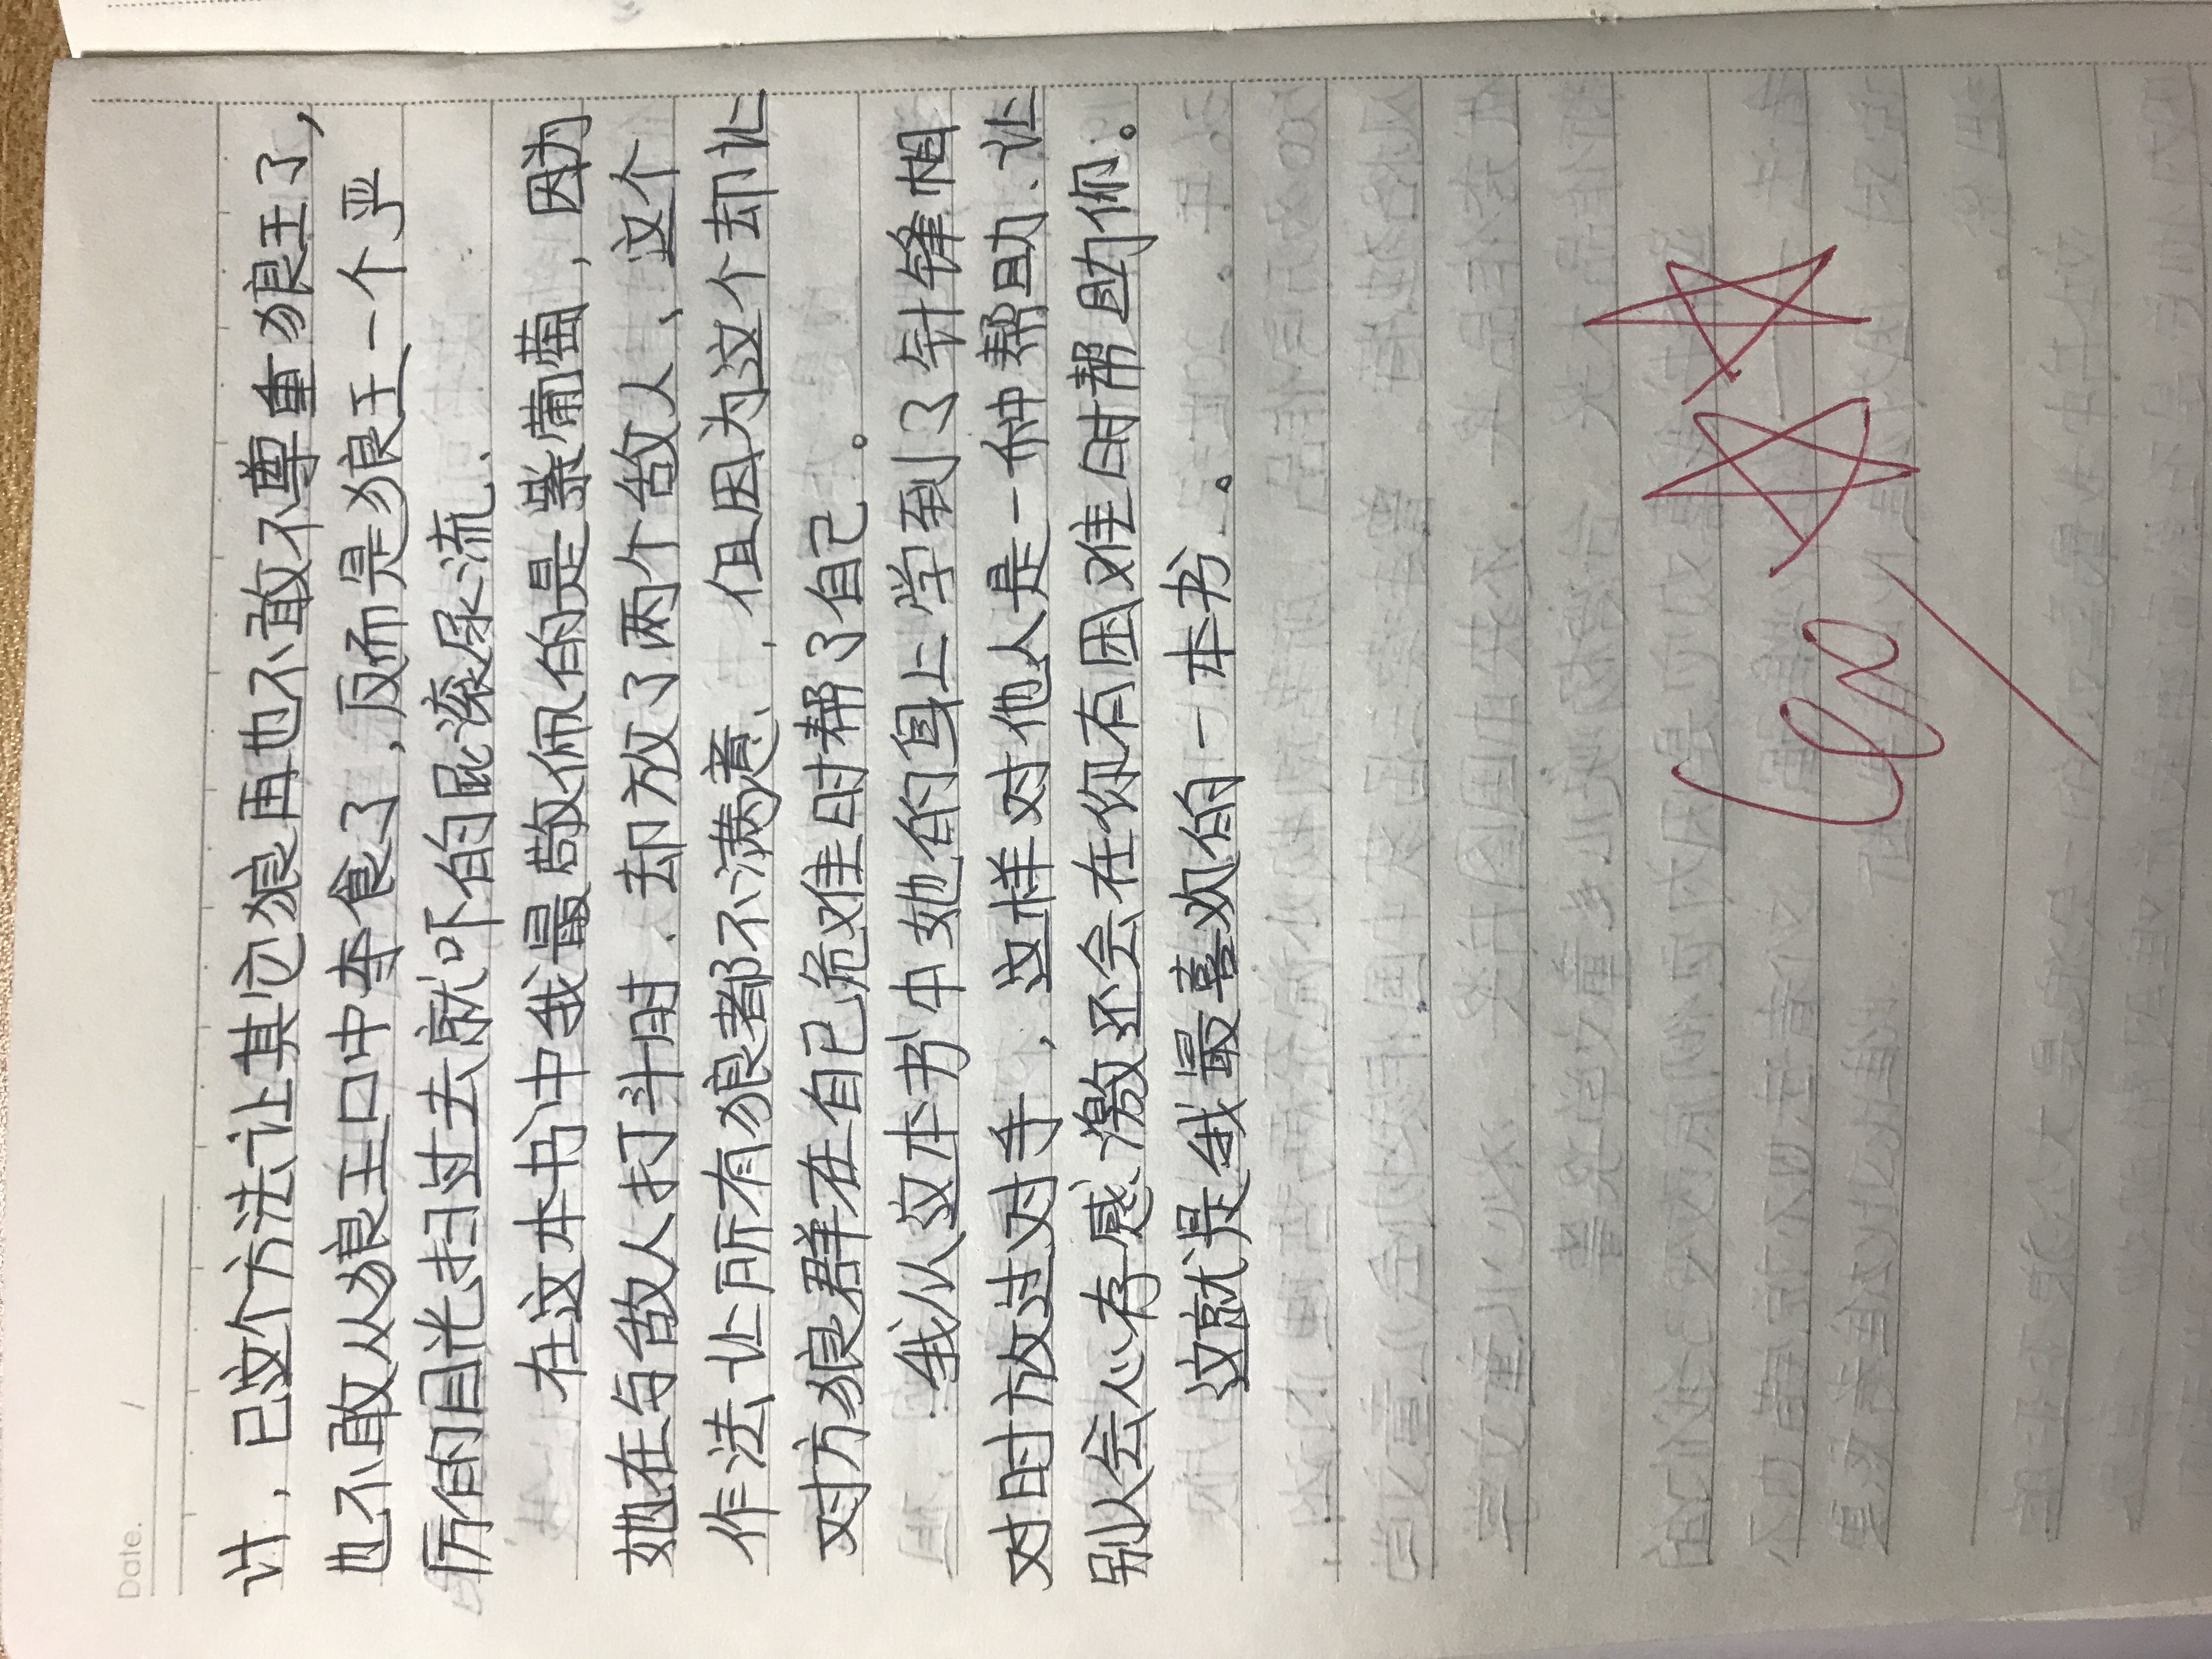 Date. /
计，已这个方法让其它狼再也不敢不尊重狼王了，
也不敢从狼王口中夺食了，反而是狼王一个严
厉的目光扫过去就吓的屁滚尿流．
在这本书中我最敬佩的是紫葡萄，因为
她在与敌人打斗时．却放了两个敌人、这个
作法让所有狼都不满意．但因为这个却让
对方狼群在自己危难时帮了自己。
我从这本书中她的身上学到了针锋相
对时放过对手，这样对他人是一种帮助．让
别人会心存感激还会在你有困难时帮助你。
这就是我最喜欢的一本书。